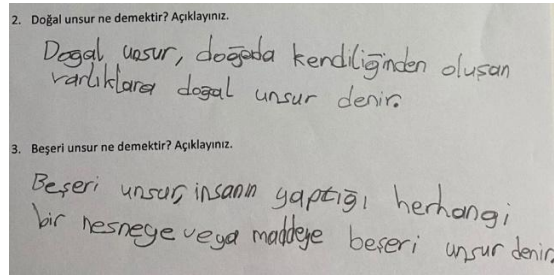 2. Doğal unsur ne demektir? Açıklayınız.
Dogal unsur, doğada kendiliğinden oluşan
varlıklara dogal unsur denir.
3. Beşeri unsur ne demektir? Açıklayınız.
Beşeri unsur, insanın yaptığı herhangi
bir nesneye veya maddeye beşeri unsur denir.